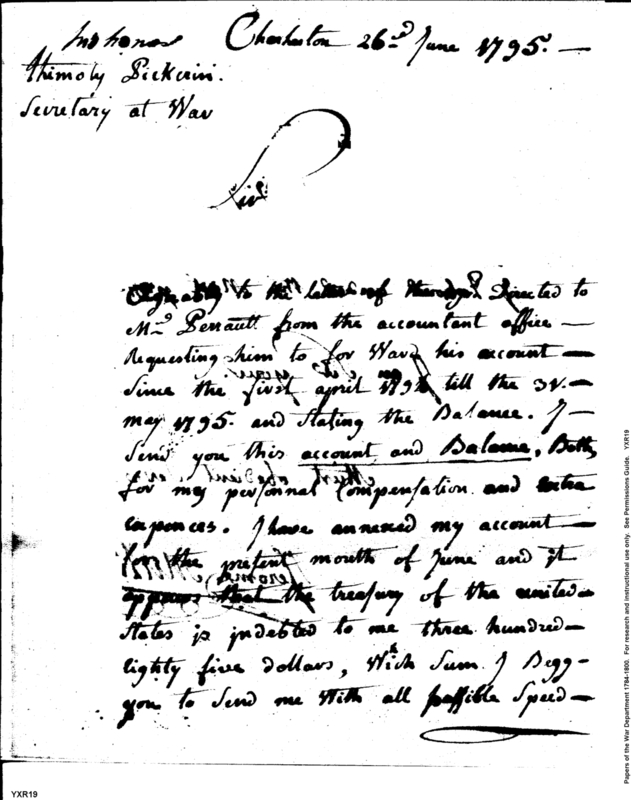 his honor Charleston 26.d June 1795. —
thimoty Pickerin.
Secretary at War
Sir
to the letter of Directed to
Mr. Perrault from the accountant office —
Requesting him to for Ward his account —
Since the first april till the 31.—
may 1795. and stating the Balance. I —
Send you this account and Balance, Both
for my personnal Compensation and extra
expences. I have annexed my account —
for the present month of June and it
appears that the treasury of the united—
States is indebted to me three hundred—
Eighty five dollars, Wich Sum I Begg-
you to Send me With all possible Speed—
YXR19
Papers of the War Department 1784-1800. For research and instructional use only. See Permissions Guide. YXR19